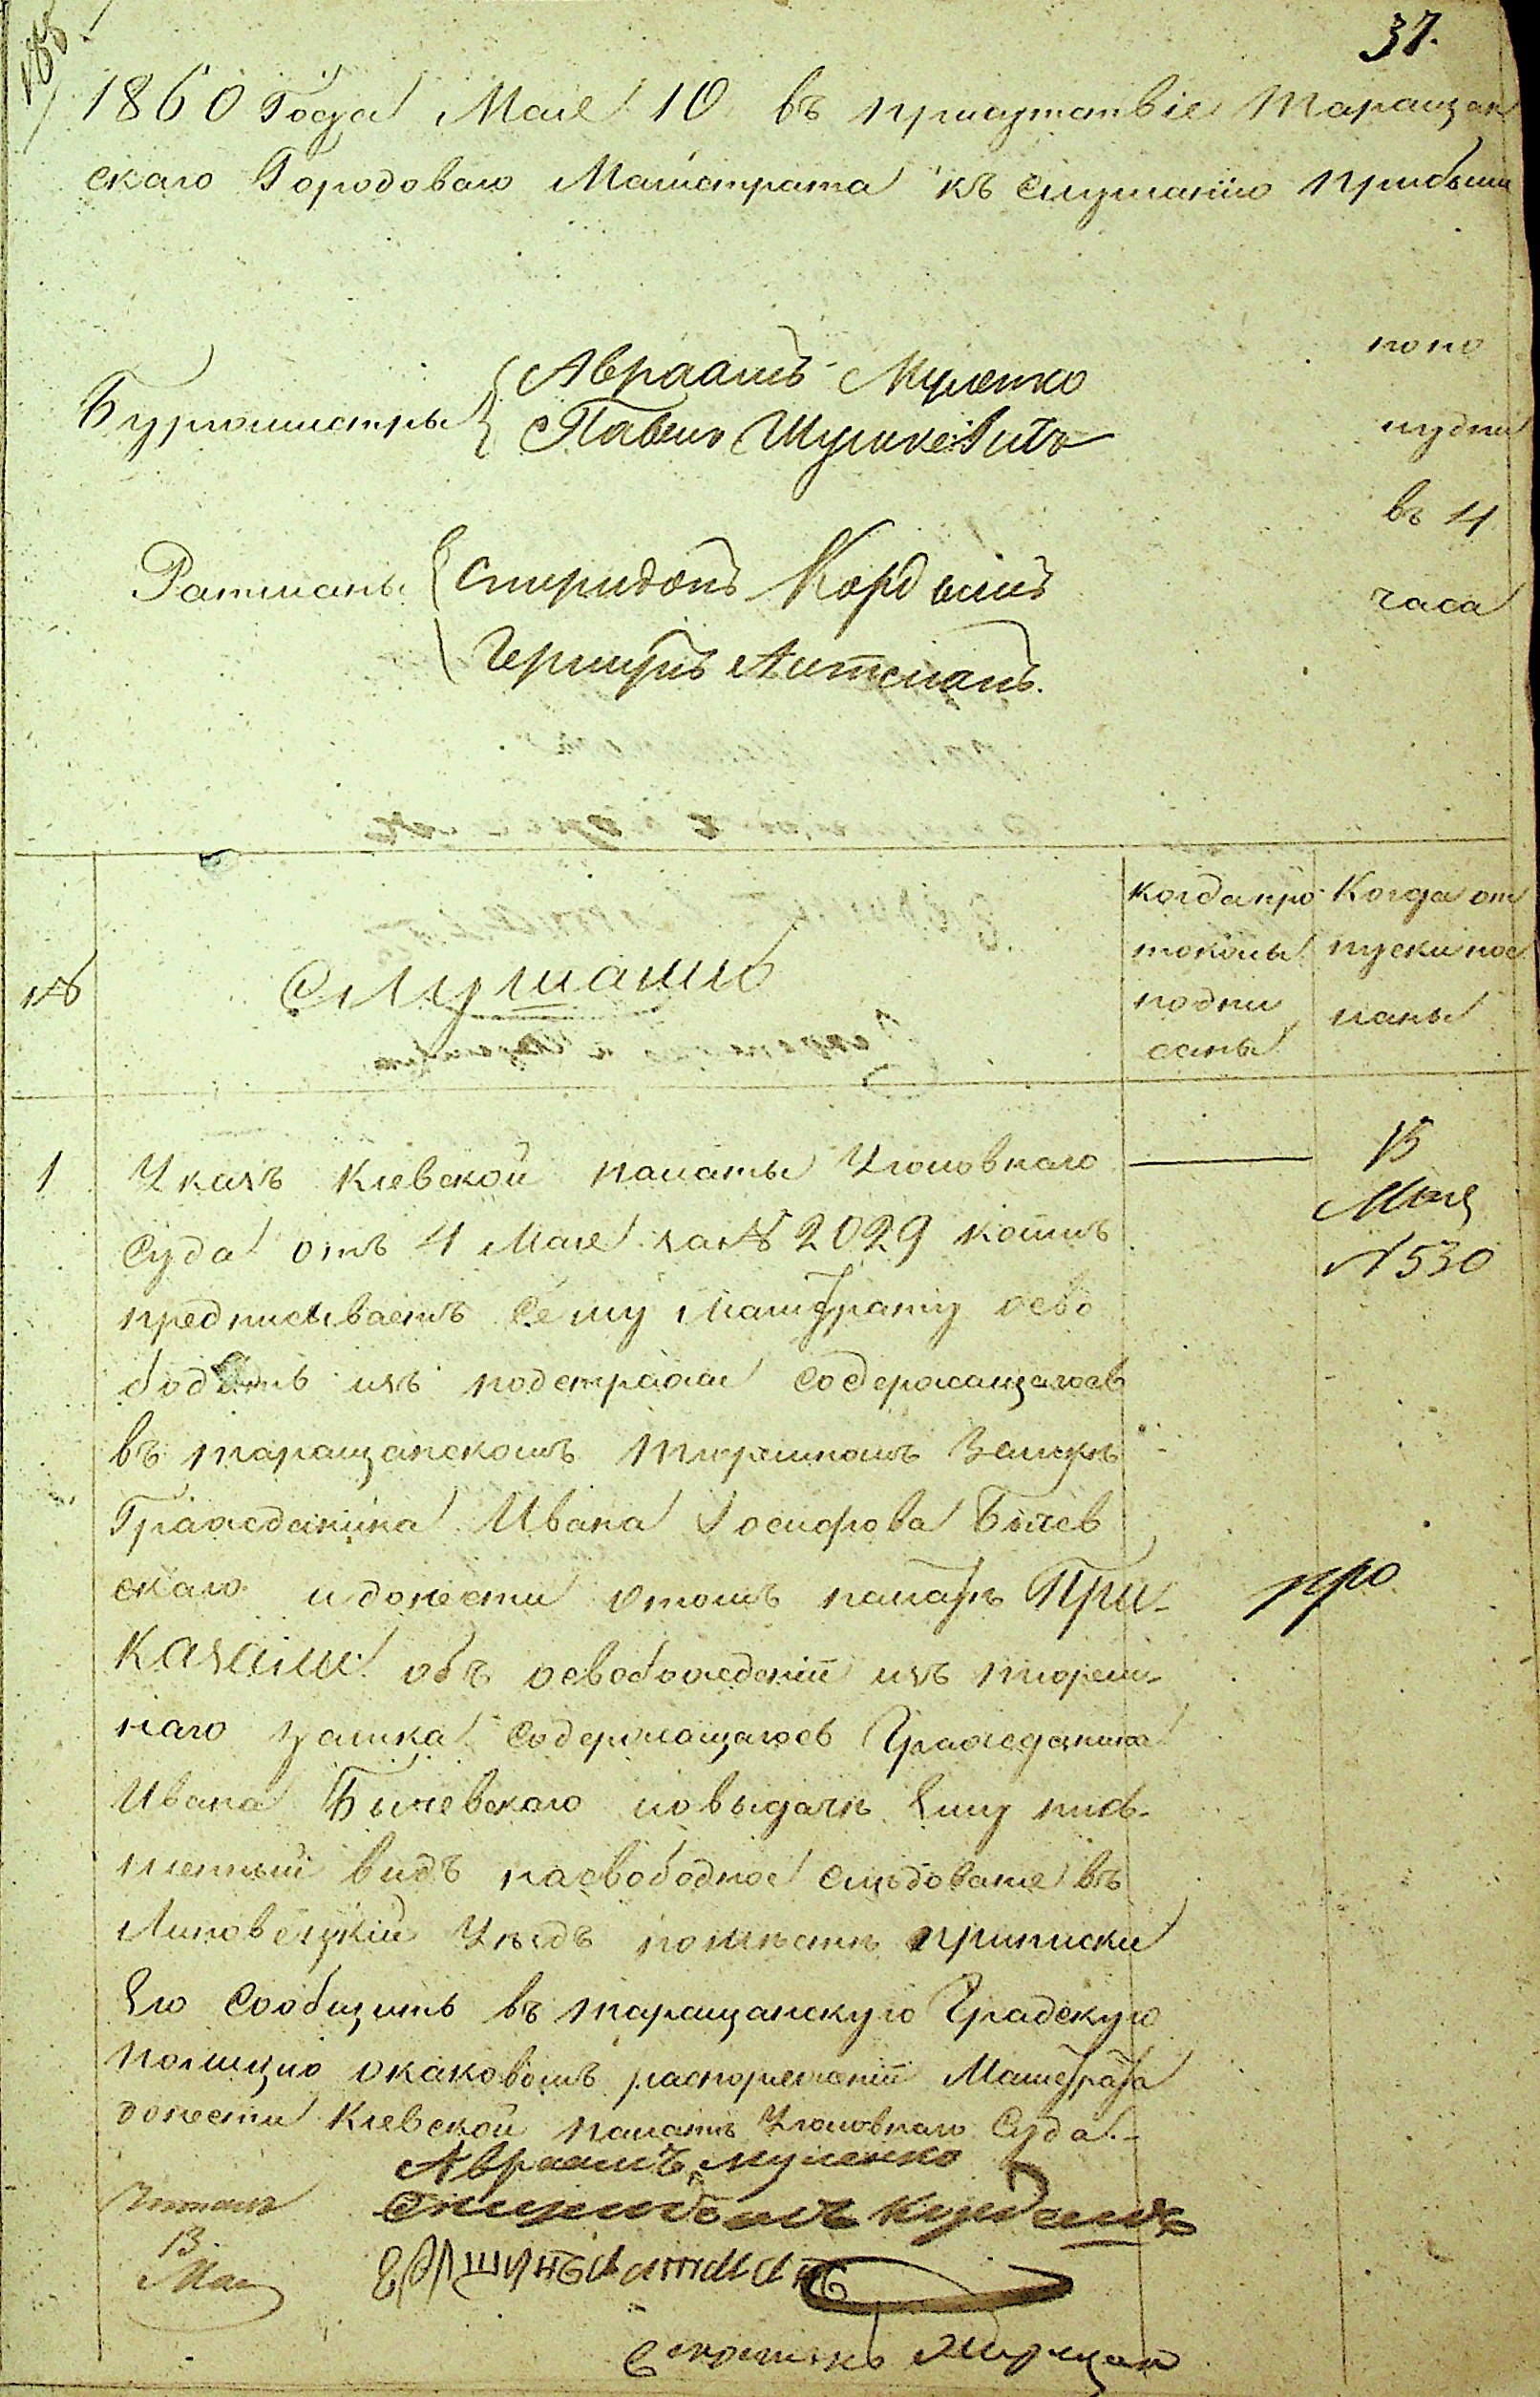 37.
1860 Года Мая 10 въ присутствіе Таращан
скаго Городоваго Магистрата къ слушанію прибыли
Бургомистры
Авраамъ Муленко
Павелъ Шулькевичъ
Ратманы
Спиридонъ Кордышъ
Гершунъ Литманъ.
попо
лудни
въ 4
часа
№
Слушали
Когда про
токолы
подпи
саны
Когда от
пуски пос
ланы
1
Указъ Кіевской палаты Уголовнаго
Суда отъ 4 Мая за № 2029 коимъ
предписываетъ Сему Магистрату осво
бодить изъ подстражи содержащагося
въ таращанскомъ тюремномъ Замкѣ
Гражданина Ивана Іосифова Бычев
скаго и донести отомъ палатѣ При-
казали: объ освобожденіи изъ тюрем-
наго замка содержащагося Гражданина
Ивана Бычевскаго иовыдачѣ Ему пись-
менный видъ насвободное слѣдованіе въ
Липовецкій Уѣздъ помѣстѣ приписки
Его Сообщить въ таращанскую Градскую
полицію окаковомъ распоряженіи Магистрата
донести Кіевской палатѣ Уголовнаго Суда.-
13
Мая
№ 530
Авраамъ Муленко
Спиридонъ Кордышъ
Гершунъ Литманъ
13
Мая